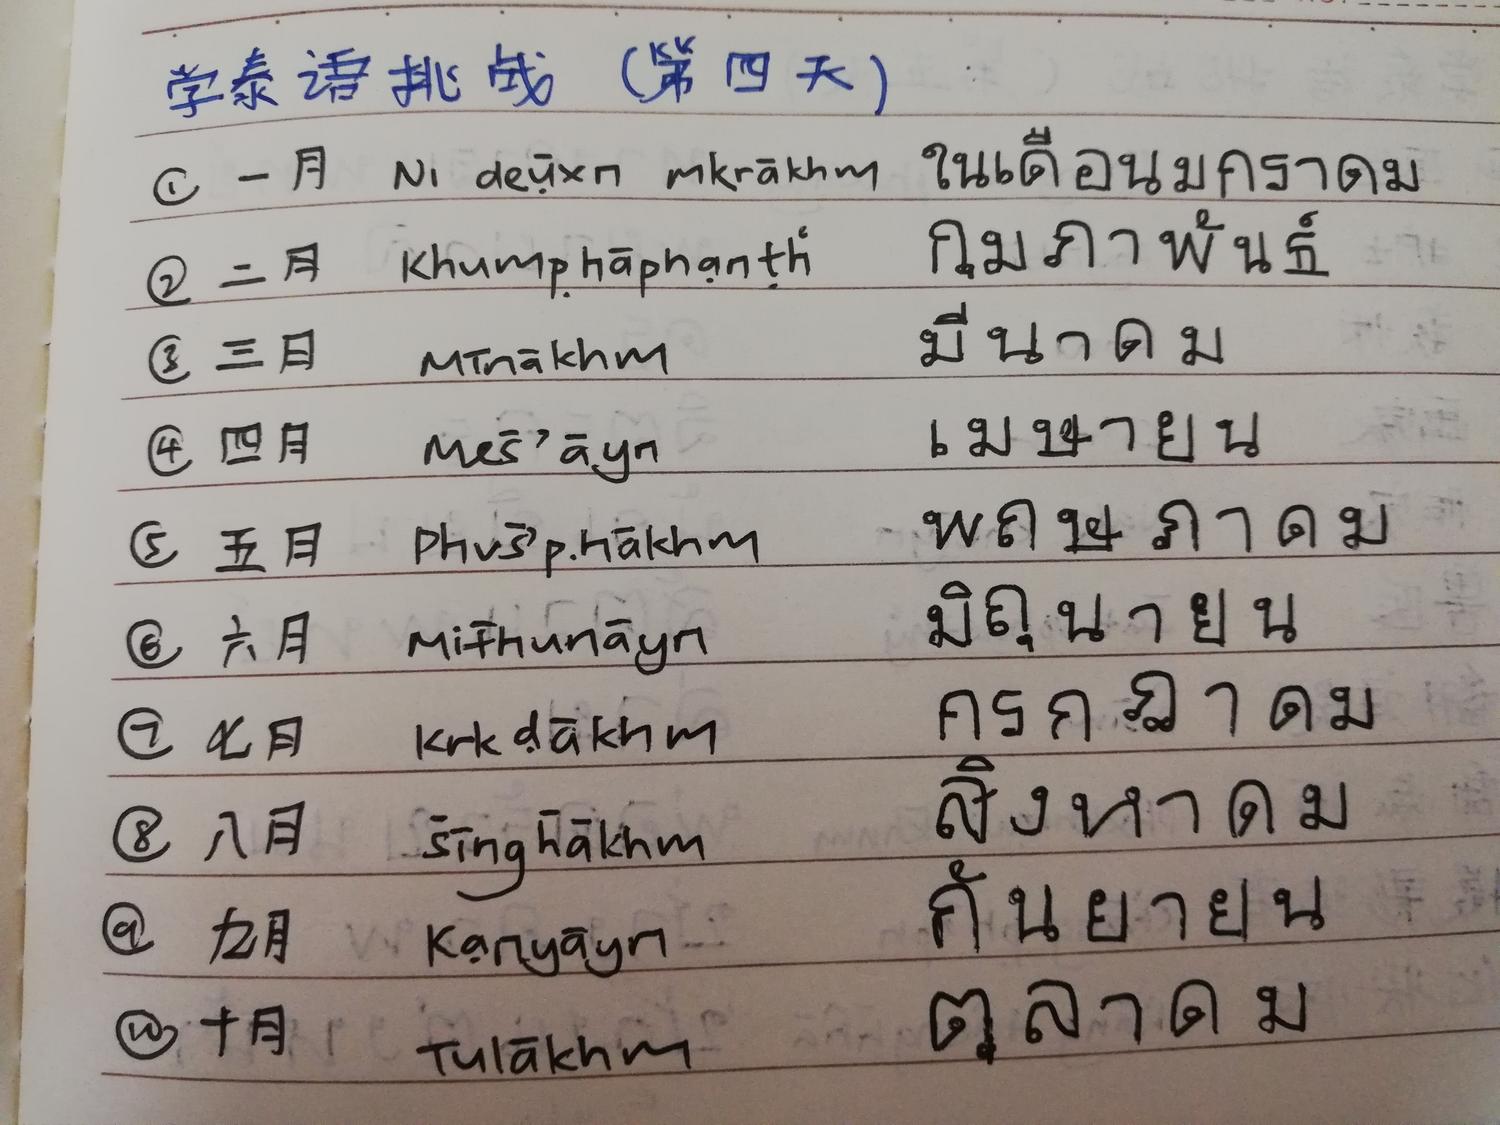 学泰语挑战（第四天）
① 一月 Ni deụ̄xn mkrākhm ในเดือนมกราดม
② 二月 Khump̣hāphạnṭh̒ กุมภาพันธ์
③ 三月 Mīnākhm มีนาดม
④ 四月 Mes̄’āyn เมษายน
⑤ 五月 Phvs̄’p.hākhm พฤษภาดม
⑥ 六月 Mit̄hunāyn มิถุนายน
⑦ 七月 Krkḍākhm กรกฎาดม
⑧ 八月 s̄īngh̄ākhm สิงหาดม
⑨ 九月 Kạnyāyn กันยายน
⑩ 十月 Tulākhm ตุลาดม